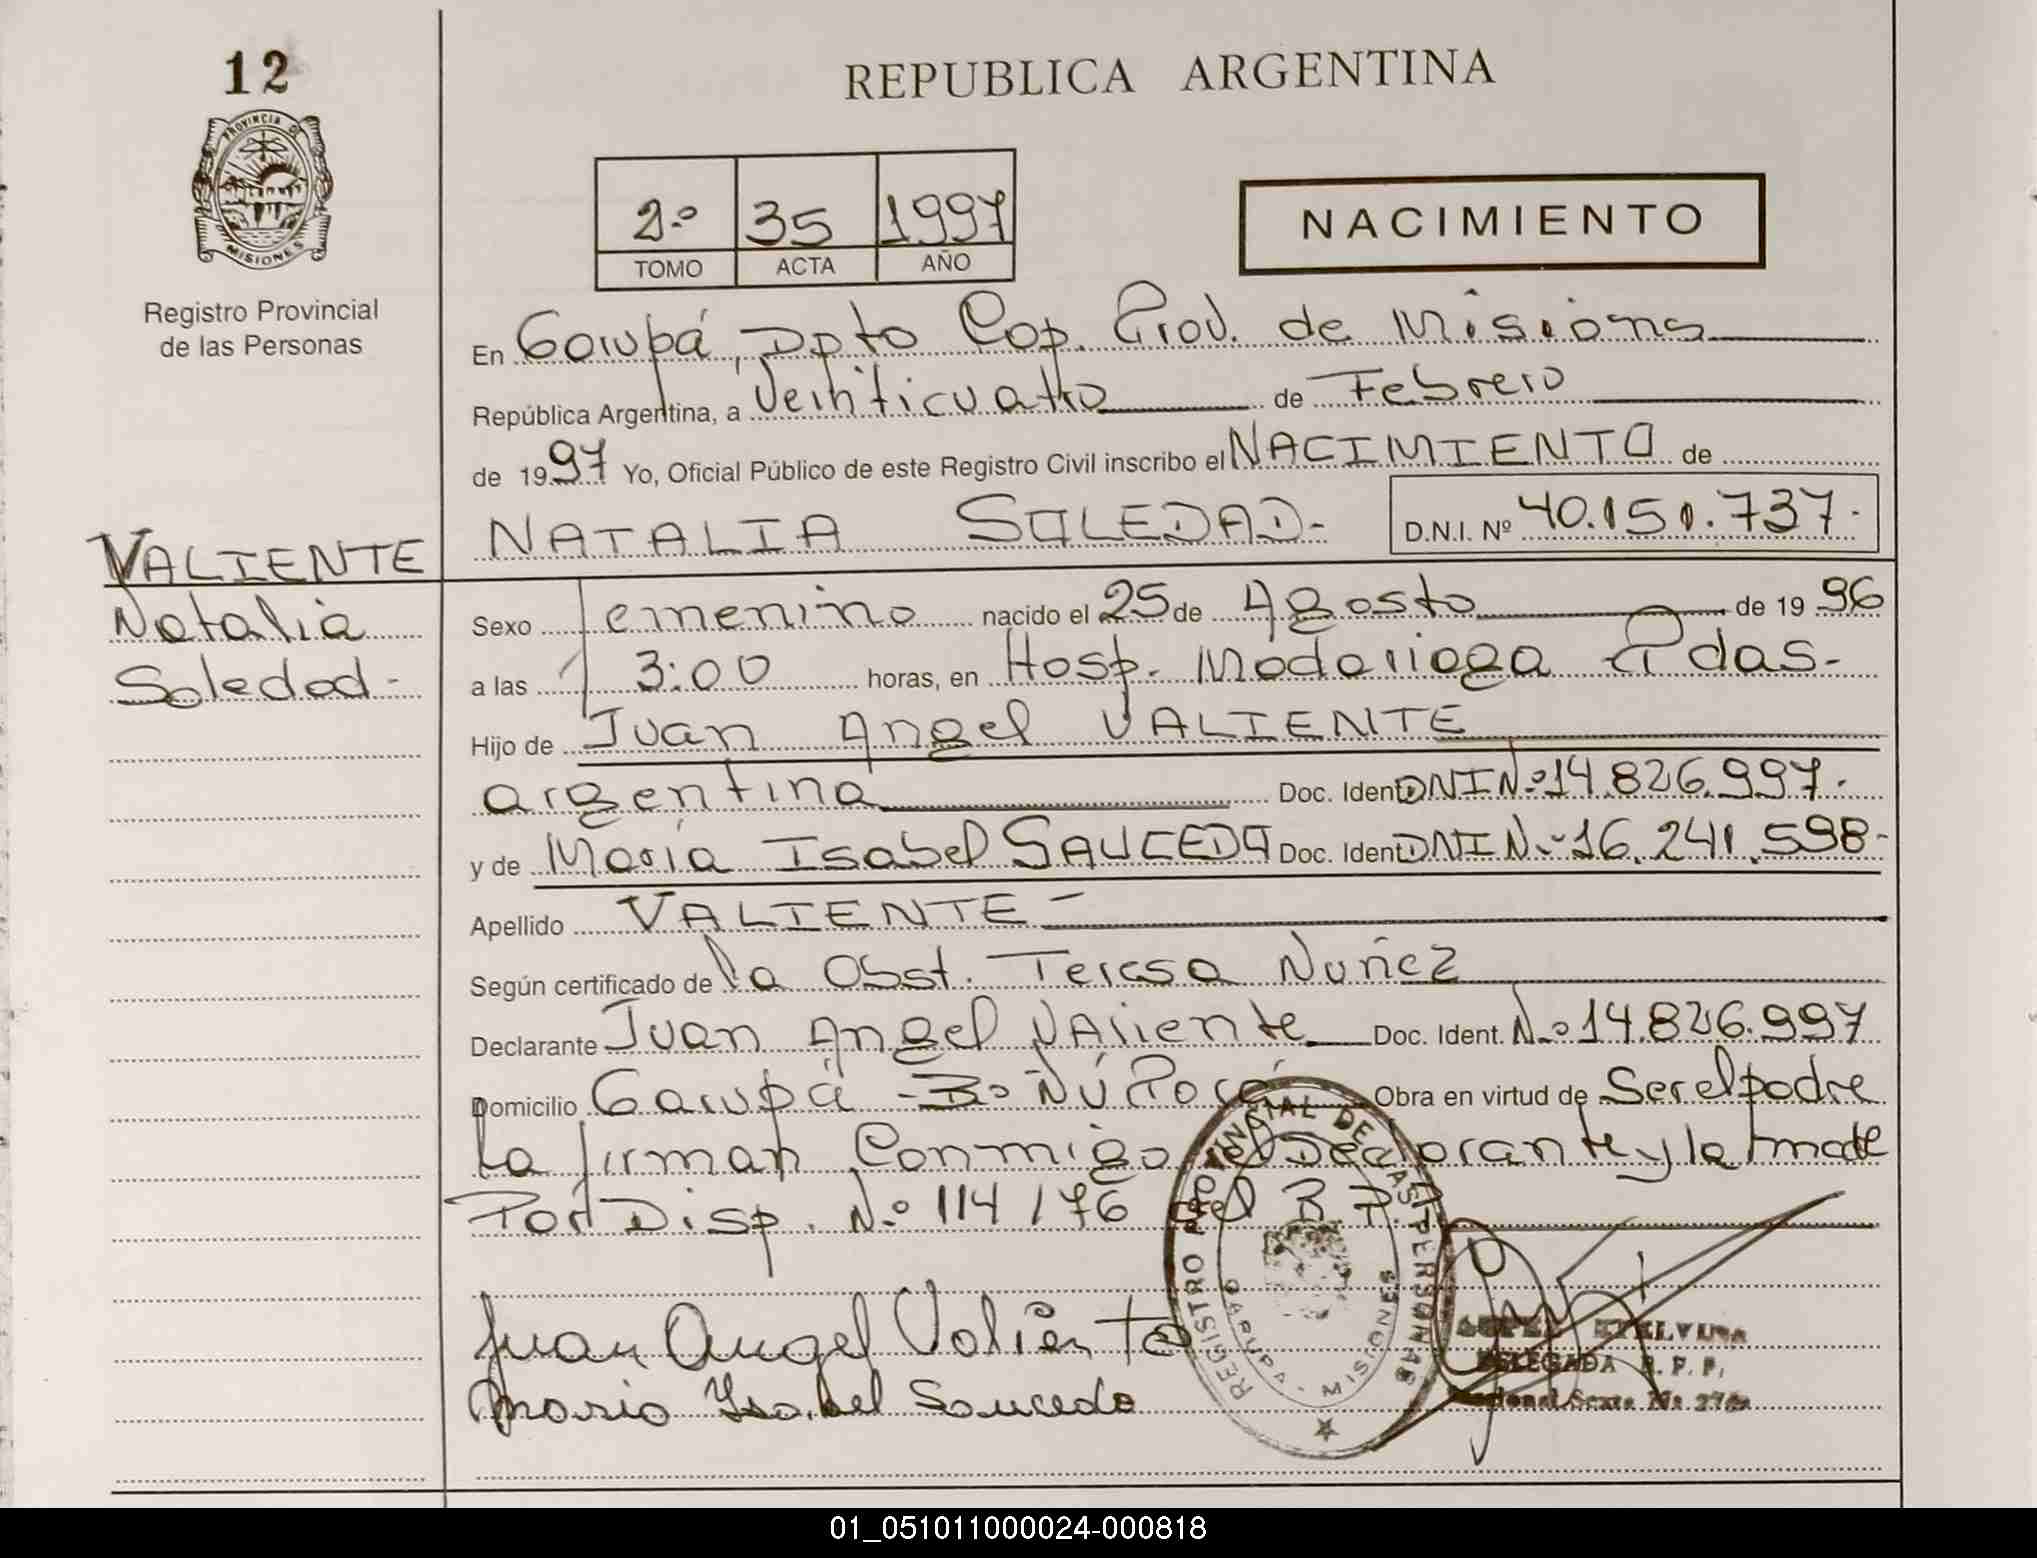 12
PROVINCIA DE
MISIONES
Registro Provincial
de las Personas
VALIENTE
Natalia
Soledad -
REPUBLICA ARGENTINA
2º 35 1997
TOMO ACTA AÑO
NACIMIENTO
En Garupá, Dpto Cap. Prov. de Misions
República Argentina, a Veinticuatro de Febrero
de 1997 Yo, Oficial Público de este Registro Civil inscribo el NACIMIENTO de
NATALIA SOLEDAD - D.N.I. Nº 40.151.737.
Sexo Femenino nacido el 25 de Agosto de 1996
a las 3:00 horas, en Hosp. Madariaga Pdas.
Hijo de Juan Angel VALIENTE
argentina Doc. Ident. DNI Nº 14.826.997.
y de María Isabel SAUCEDO Doc. Ident. DNI Nº 16.241.598-
Apellido VALIENTE -
Según certificado de la Obst. Teresa Nuñez
Declarante Juan Angel VAliente Doc. Ident. Nº 14.826.997
Domicilio Garupá - Bº ÑÚ Porá Obra en virtud de Ser el padre
La firman Conmigo el Declarante y la madre
Por Disp. Nº 114/76 del R.P.P.
Juan Angel Valiente
Maria Ysabel Saucedo
REGISTRO PROVINCIAL DE LAS PERSONAS
GARUPA - MISIONES
ETELVINA
DELEGADA R. P. P.
01_051011000024-000818